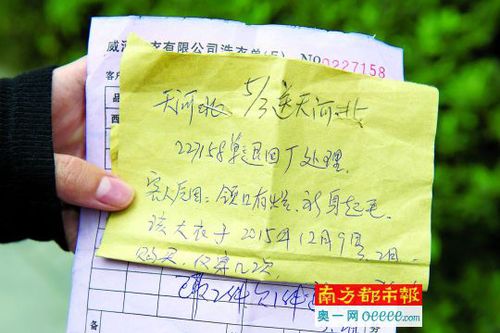 威 衣有限公司洗衣单(5) No 0227158
客
品
西
天河北 5/3送天河北
227158单退回厂处理.
客人反因: 领口有烂, 衫身起毛.
该大衣于2015年12月9号,2月
购买, 仅穿几次.
南方都市報
奥一网 oeeee.com
备